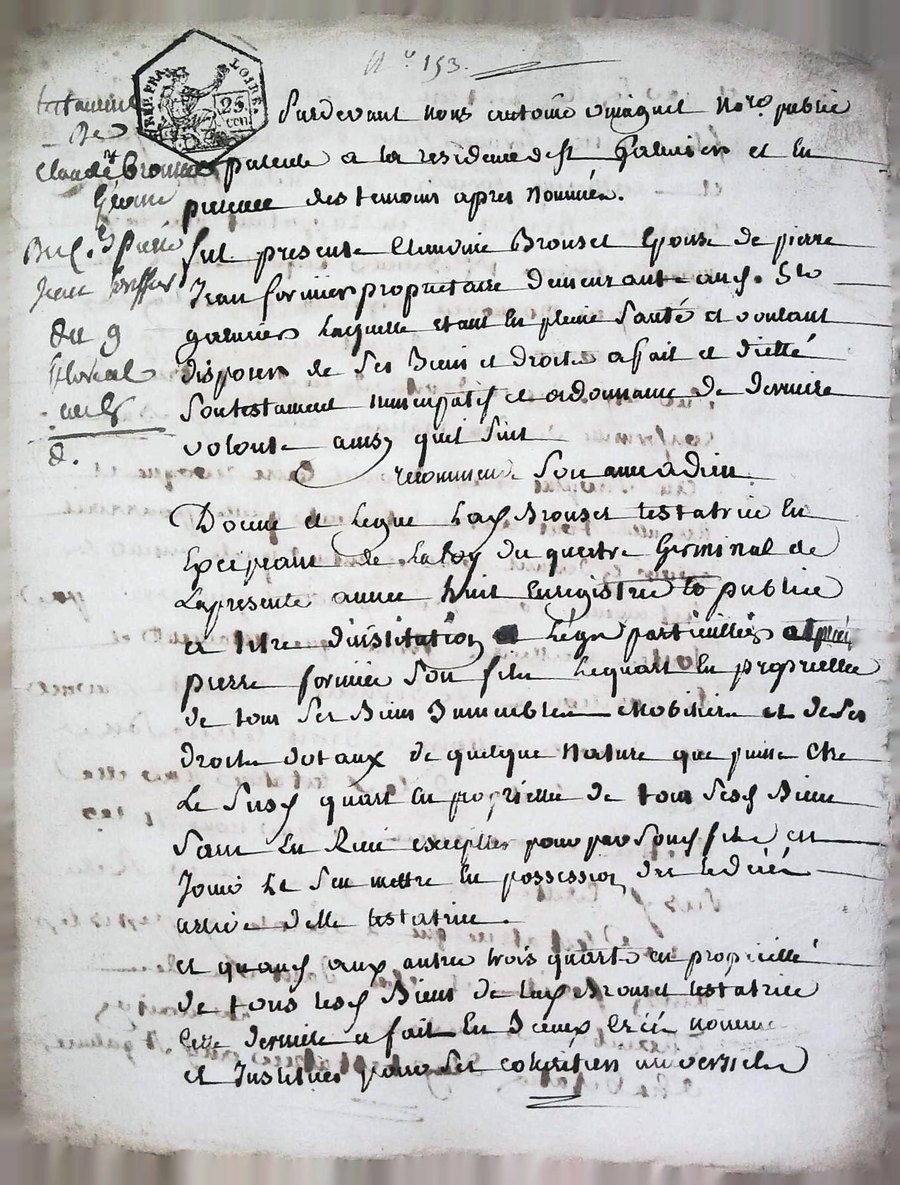 N° 153.
testament
de
Claudine Brouset
du 9
floreal
an 8
REP. FRA.
LOIRE
25
cen
Pardevant nous antoine notre public
patenté a la residence de St Galmier et en
presence des temoins apres nommés.
fut presente Claudine Brouset Epouse de pierre
Jean formier proprietaire demeurant aud. St
galmier laquelle etant en pleine Santé et voulant
disposer de Ses Biens et droits a fait et dicté
Son testament nuncupatif et ordonnance de derniere
volonté ainsy quil Suit
recommende Son ame a dieu
Donne et legue lad Brouset testatrice En
Execution de la loy du quatre Germinal de
La presente année huit Enregistrée et publiée
a titre d'institution et legs particulliers
pierre formier Son fils le quart En proprietté
de tous Ses Biens Immeubles Mobiliers et de Ses
droits dotaux de quelque Nature que puisse Etre
Le Susd quart En proprietté de tous Sesd Biens
Sans En Rien excepter pour par Sond fils en
Jouir et Sen mettre En possession des le décés
arrivé delle testatrice.
et quand aux autres trois quarts en proprietté
de tous lesd Biens de lad Brouset testatrice
cette derniere a fait En Iceux Créé nommé
et Institué pour Ses coheritiers universels